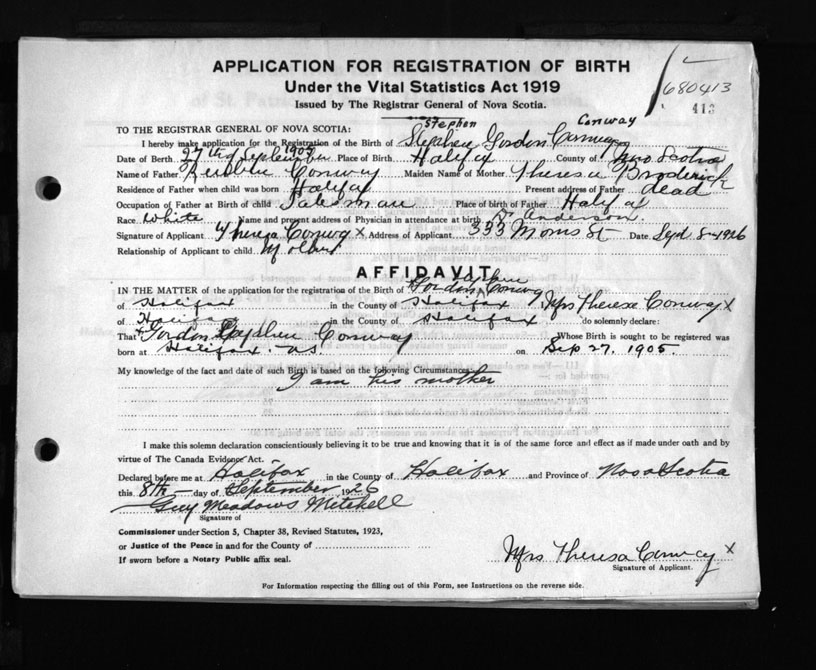 APPLICATION FOR REGISTRATION OF BIRTH
Under the Vital Statistics Act 1919
Issued by The Registrar General of Nova Scotia.
680413
413
Stephen Conway
TO THE REGISTRAR GENERAL OF NOVA SCOTIA:
I hereby make application for the Registration of the Birth of Stephen Gordon Conway
Date of Birth 27th September 1905 Place of Birth Halifax County of Nova Scotia
Name of Father Conway Maiden Name of Mother Theresa Broderick
Residence of Father when child was born Halifax Present address of Father dead
Occupation of Father at Birth of child Salesman Place of birth of Father Halifax
Race White Name and present address of Physician in attendance at birth Dr Anderson.
Signature of Applicant Theresa Conway x Address of Applicant 333 Morris St Date Sept 8-1926
Relationship of Applicant to child Mother
AFFIDAVIT
IN THE MATTER of the application for the registration of the Birth of Gordon Stephen Conway
of Halifax in the County of Halifax Mrs Therese Conway x
of Halifax in the County of Halifax do solemnly declare:
That Gordon Stephen Conway Whose Birth is sought to be registered was
born at Halifax. N.S. on Sep 27. 1905.
My knowledge of the fact and date of such Birth is based on the following Circumstances:
I am his mother
I make this solemn declaration conscientiously believing it to be true and knowing that it is of the same force and effect as if made under oath and by
virtue of The Canada Evidence Act.
Declared before me at Halifax in the County of Halifax and Province of Nova Scotia
this 8th day of September 1926
Guy Meadows Mitchell
Signature of
Commissioner under Section 5, Chapter 38, Revised Statutes, 1923,
or Justice of the Peace in and for the County of
If sworn before a Notary Public affix seal.
Mrs Theresa Conway x
Signature of Applicant.
For Information respecting the filling out of this Form, see Instructions on the reverse side.